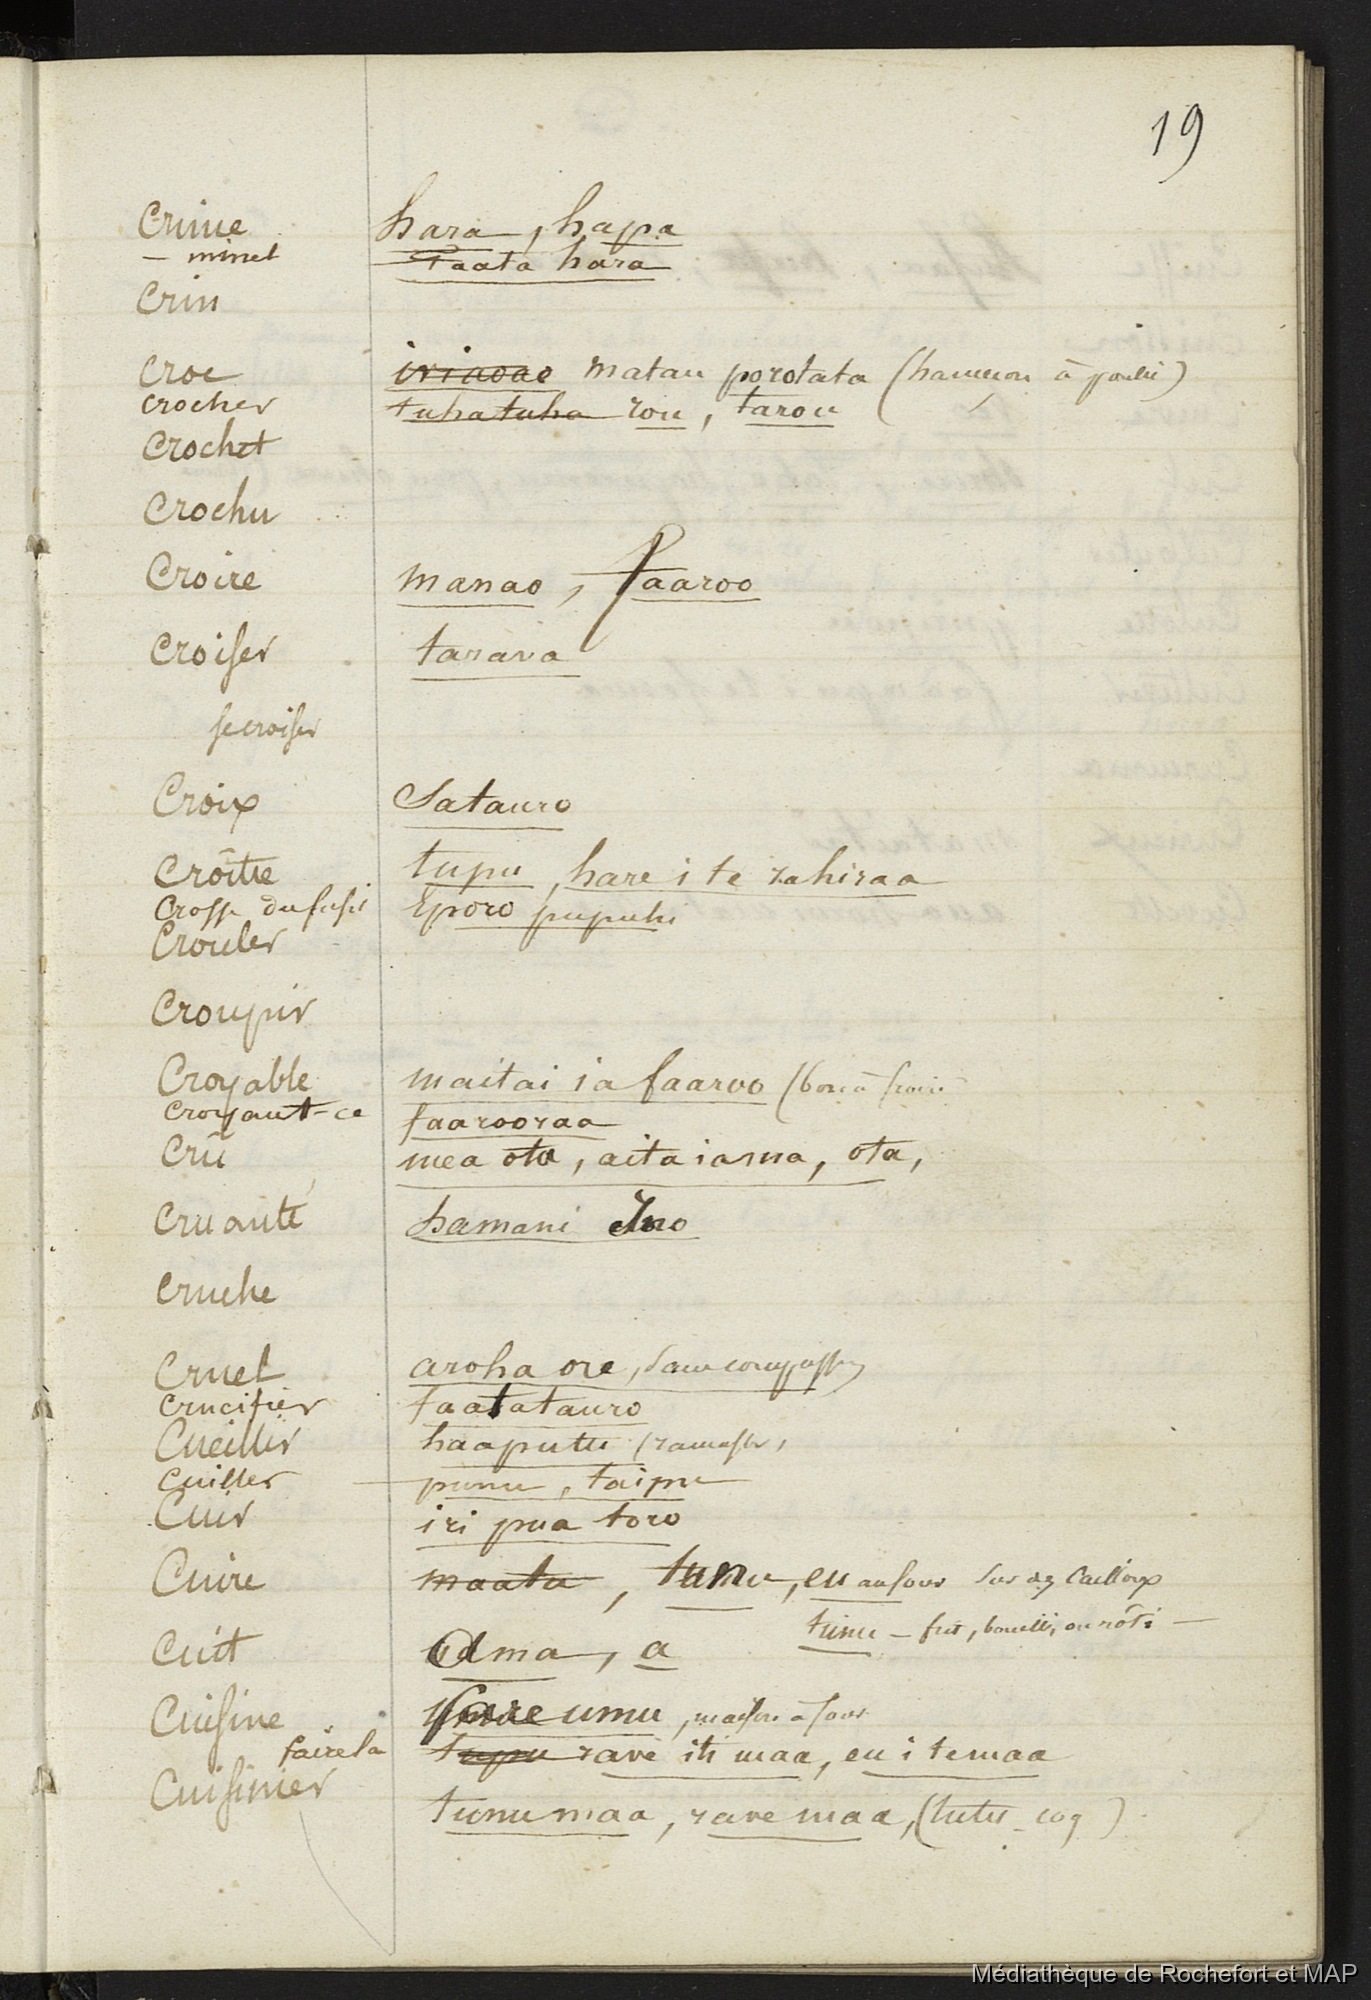 19
Crime hara, hapa
— minel Taata hara
Crin
Croc iriaoae matau porotata (hameçon à poulie)
crocher tuhatuha rou, tarou
Crochet
Crochu
Croire manao, faaroo
Croiser tarava
se croiser
Croix Satauro
Croître tupu, hare i te rahiraa
Crosse du fusil Eporo pupuhi
Crouler
Croupir
Croyable maitai ia faaroo (bon à
Croyant-ce faarooraa
Crû mea ota, aita iama, ota,
Cruauté hamani Ino
Cruche
Cruel aroha ore, sans compassion
Crucifier faatatauro
Cueillir haaputu (ramasser,
Cuiller punu, taipu
Cuir iri pua toro
Cuire maata, tunu, eu au four sur des Cailloux
tunu — frit, bouilli, ou rôti —
Cuit Ama, a
Cuisine fare umu, maison à four
faire la tupu rave iti maa, eu i te maa
Cuisinier tunu maa, rave maa, (tutu - coq)
Médiathèque de Rochefort et MAP